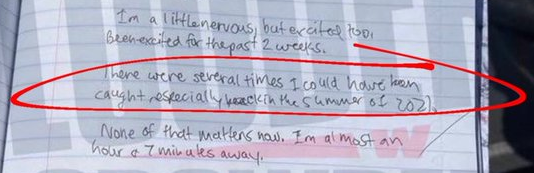 Im a little nervous, but excited too.
Been excited for the past 2 weeks.
There were several times I could have been
caught, especially back in the summer of 2021.
None of that matters now. Im almost an
hour & 7 minutes away.